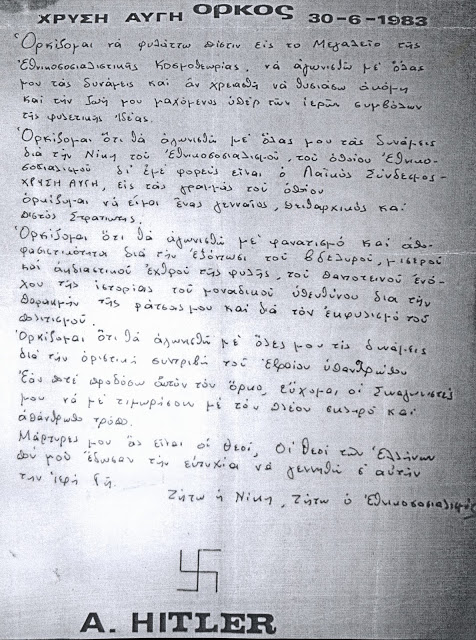 ΧΡΥΣΗ ΑΥΓΗ ΟΡΚΟΣ 30-6-1983
Ὁρκίζομαι νά φυλάττω πίστιν εἰς το Μεγαλείο τῆς
Ἐθνικοσοσιαλιστικῆς Κοσμοθεωρίας, νά ἀγωνισθῶ μέ ὅλας
μου τάς δυνάμεις καί ἄν χρειασθῆ νά θυσιάσω ἀκόμη
καί τήν ζωή μου μαχόμενος ὑπέρ τῶν ἱερῶν συμβόλων
τῆς φυλετικῆς ἰδέας.
Ὁρκίζομαι ὅτι θά ἀγωνισθῶ μέ ὅλας μου τάς δυνάμεις
διά τήν Νίκη τοῦ Ἐθνικοσοσιαλισμοῦ, τοῦ ὁποίου Ἐθνικο-
σοσιαλισμοῦ δι' ἐμέ φορεύς εἶναι ὁ Λαϊκός Σύνδεσμος-
ΧΡΥΣΗ ΑΥΓΗ, εἰς τάς γραμμάς τοῦ ὁποίου
ὁρκίζομαι νά εἶμαι ἕνας γενναῖος, πειθαρχικός καί
πιστός Στρατιώτης.
Ὁρκίζομαι ὅτι θά ἀγωνισθῶ μέ φανατισμό καί ἀπο-
φασιστικότητα διά τήν ἐξόντωσι τοῦ βδελυροῦ, μιαροῦ
καί ἀηδιαστικοῦ ἐχθροῦ τῆς φυλῆς, τοῦ ταπεινοῦ ἐνό-
χου τῆς ἱστορίας τοῦ μοναδικοῦ ὑπευθύνου διά τήν
παρακμήν τῆς ράτσας μου καί διά τόν ἐκφυλισμό τοῦ
πολιτισμοῦ.
Ὁρκίζομαι ὅτι θά ἀγωνισθῶ μέ ὅλες μου τίς δυνάμεις
διά τήν ὁριστική συντριβή τοῦ Ἑβραίου ὑπανθρώπου
Ἐάν ποτέ προδόσω αὐτόν τόν ὅρκο, εὔχομαι οἱ Συναγωνιστές
μου νά μέ τιμωρήσουν μέ τόν πλέον σκληρό καί
ἀπάνθρωπο τρόπο.
Μάρτυρες μου ἄς εἶναι οἱ θεοί, Οἱ θεοί τῶν Ἑλλήνων
πού μοῦ ἔδωσαν τήν εὐτυχία νά γεννηθῶ σ' αὐτήν
τήν ἱερή γῆ.
Ζήτω ἡ Νίκη, Ζήτω ὁ Ἐθνικοσοσιαλισμός
A. HITLER